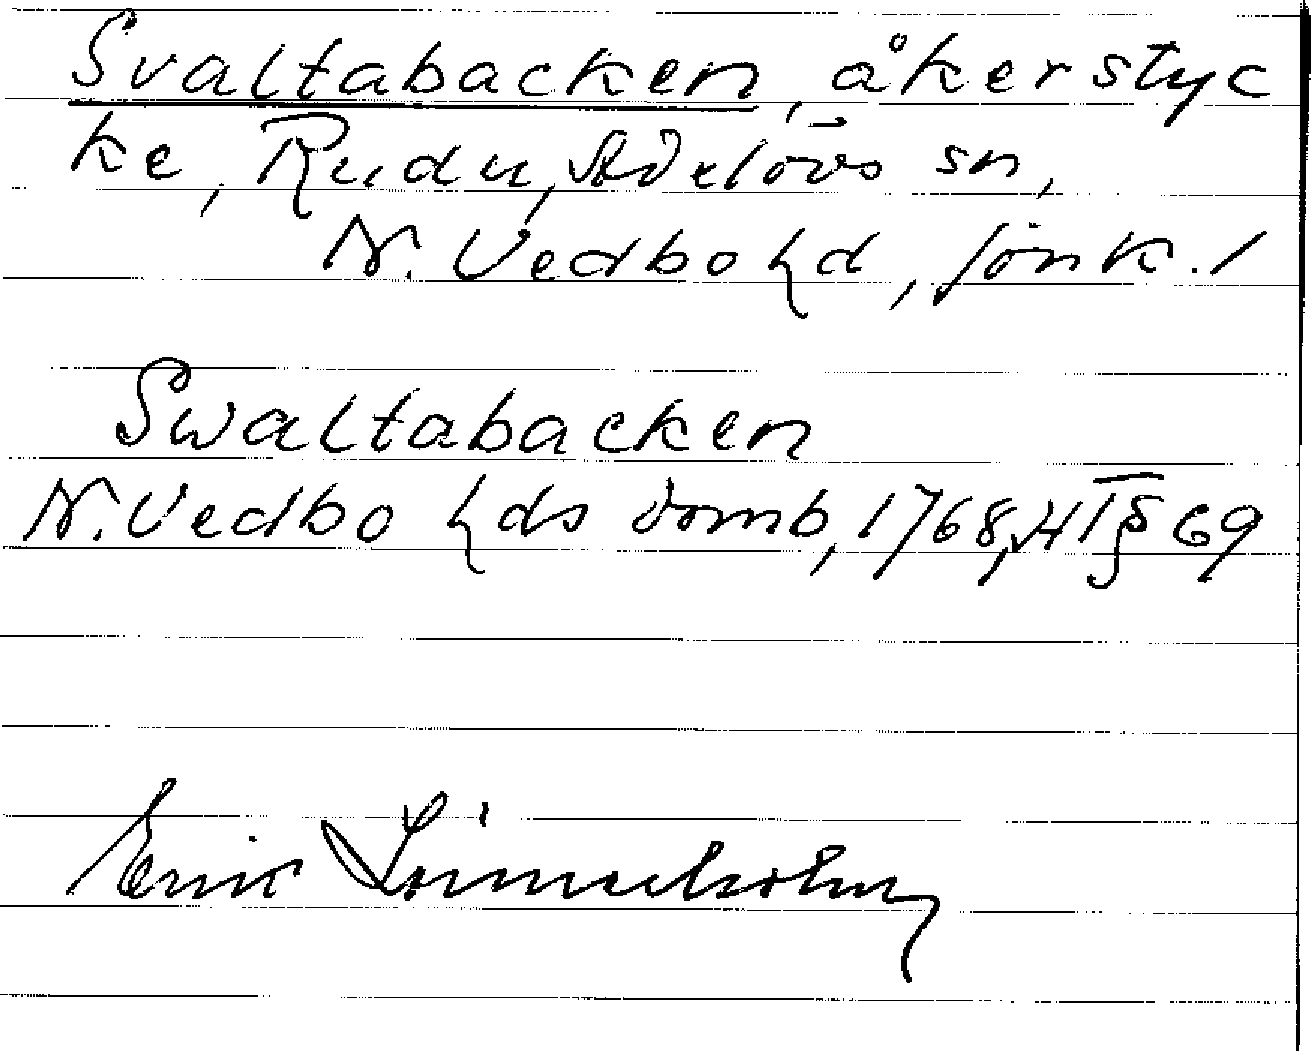 Svaltabacken, åkerstyc
ke, Rudu, Adelövs sn,
N. Vedbo hd, Jönk. l
Swaltabacken
N. Vedbo hds domb, 1768, § 69
Erik